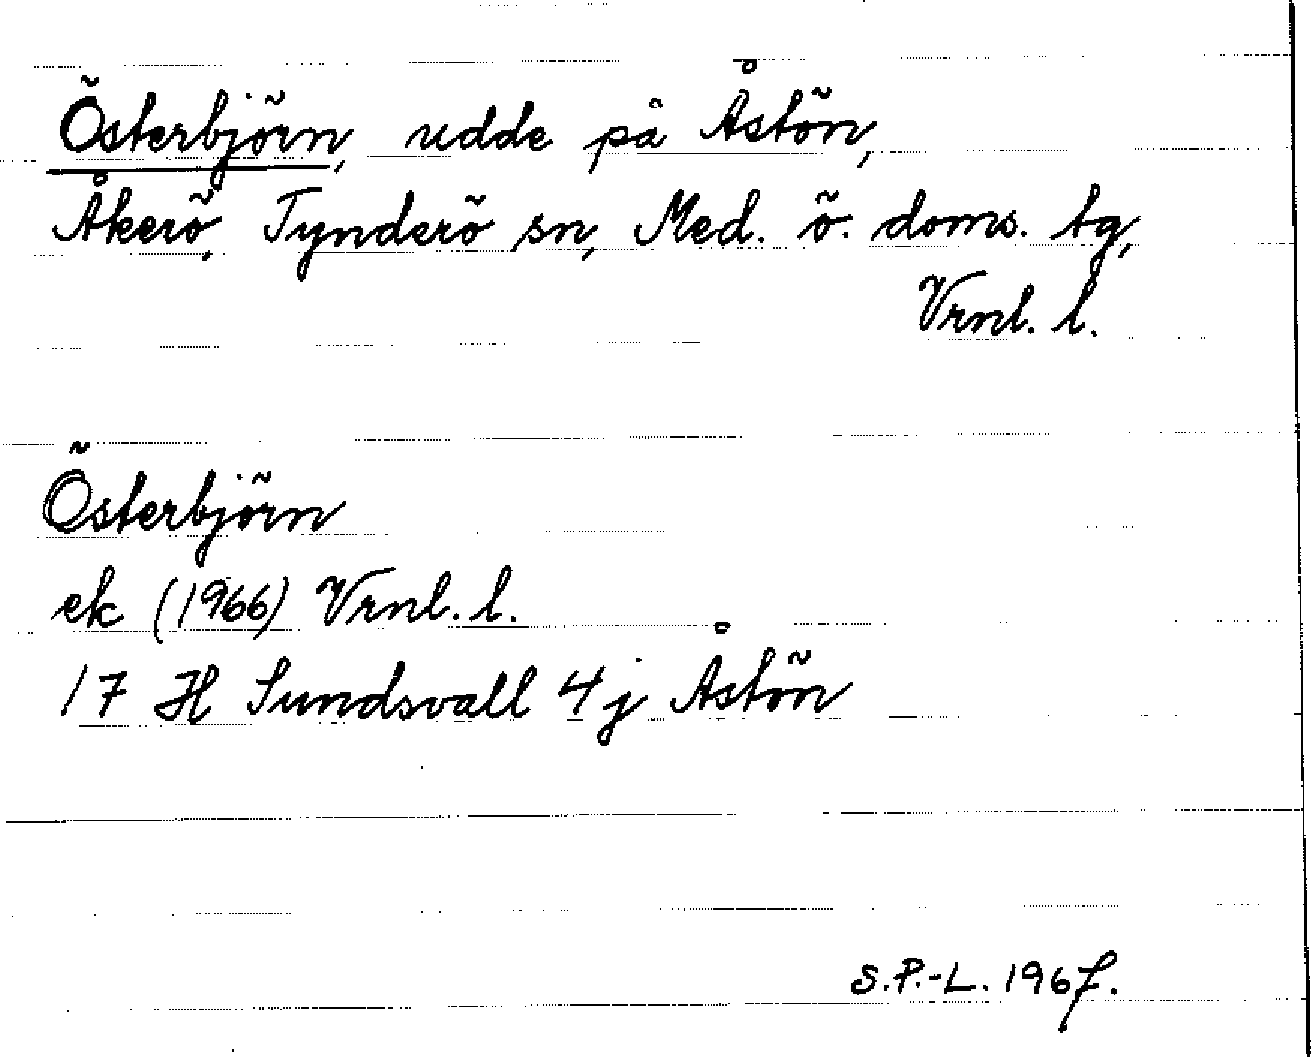 Österbjörn, udde på Åstön,
Åkerö, Tynderö sn, Med. ö. doms. tg,
Vrnl. l.
Österbjörn
ek (1966) Vrnl. l.
17 H Sundsvall 4 j Åstön
S.P.-L. 1967.